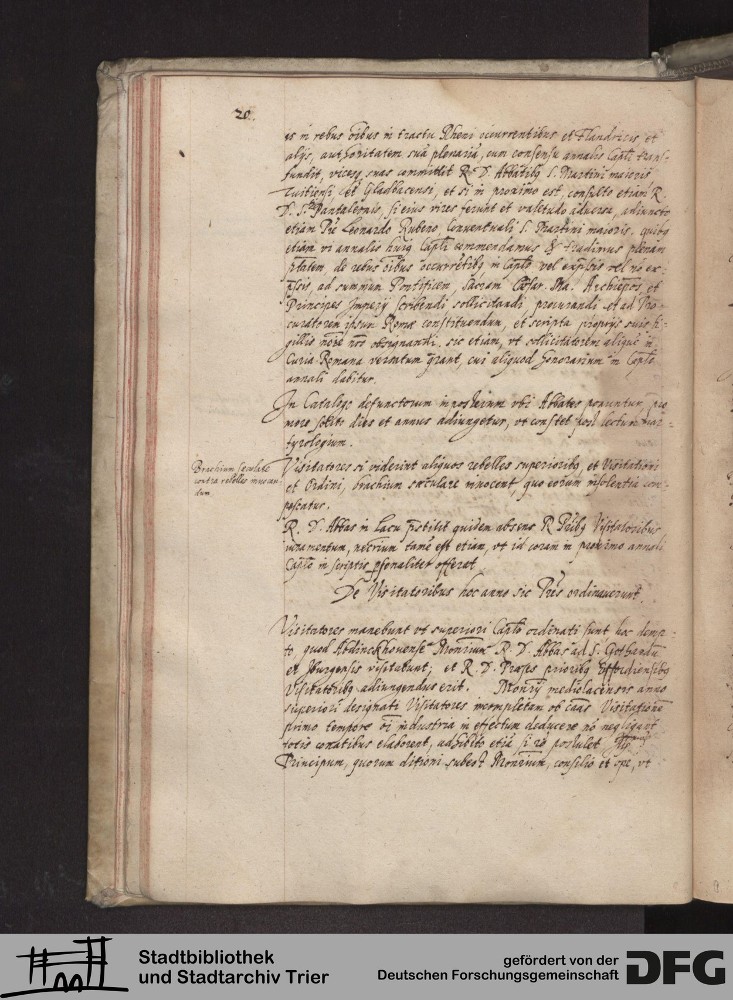 20.
et in rebus oībus in tractu Rheni occurrentibus et Flandricis et
alijs, authoritatem suā plenariā, cum consensu annalis Capli trans-
fundit, vicesq suas committit R. D. Abbatibq S. Martini maioris
Tuitiensi et Gladbacensi, et si in proximo est, consulto etiam R.
D. S. Pantaleonis, si eius vires ferunt et valetudo adversa, adiuncto
etiam Pre Leonardo Rubero Conventuali S. Martini maioris. quibq
etiam vi annalis huiq Capli commendamus & tradimus plenam
ptatem, de rebus oībus occurrētibq in Caplo vel expressis vel nō ex-
pssis, ad summum Pontificem, Sacram Caesar. Ma. Archiepos, et
Principes Imperij scribendi sollicitandi procurandi et ad Pro-
curatorem ipsum Romae constituendum, et scripta proprijs suis si-
gillis noīe nro obsignandi. sic etiam, ut sollicitatorem aliquē in
Curia Romana versatum q̄rant, cui aliquod honorarium in Caplo
annali dabitur.
In Catalogo defunctorum in posterum ubi Abbates ponuntur, pro
more solito dies et annus adiungetur, ut constet post lectum mar-
tyrologium.
Brachium saeculare
contra rebelles invocan-
dum
Visitatores si viderint aliquos rebelles superioribq, et Visitationi
et Ordini, brachium saeculare invocent, quo eorum insolentia com-
pescatur.
R. D. Abbas in Lacu pstitit quidem absens R Pribq Visitatoribus
iuramentum, necrium tamē est etiam, ut id coram in proximo annali
Caplo in scriptis psonaliter offerat.
De Visitatoribus hoc anno sic Pres ordinaverunt.
Visitatores manebunt ut superiori Caplo ordinati sunt hoc demp-
to, quod Abdinckhovense Monrium R. D. Abbas ad S. Gothardū
et Iburgensis visitabunt; et R. D. Praeses prioribq Erffordiensibq
Visitatoribq adiungendus erit. Monrij mediolacensis anno
superiori designati Visitatores incompletam ob caās Visitationē
primo tempore oī industria in effectum deducere nō negligant
totis conatibus elaborent, adhibito etiā si res postulet
Principum, quorum ditioni subest Monrium, consilio et ope, ut
Stadtbibliothek
und Stadtarchiv Trier
gefördert von der
Deutschen Forschungsgemeinschaft
DFG